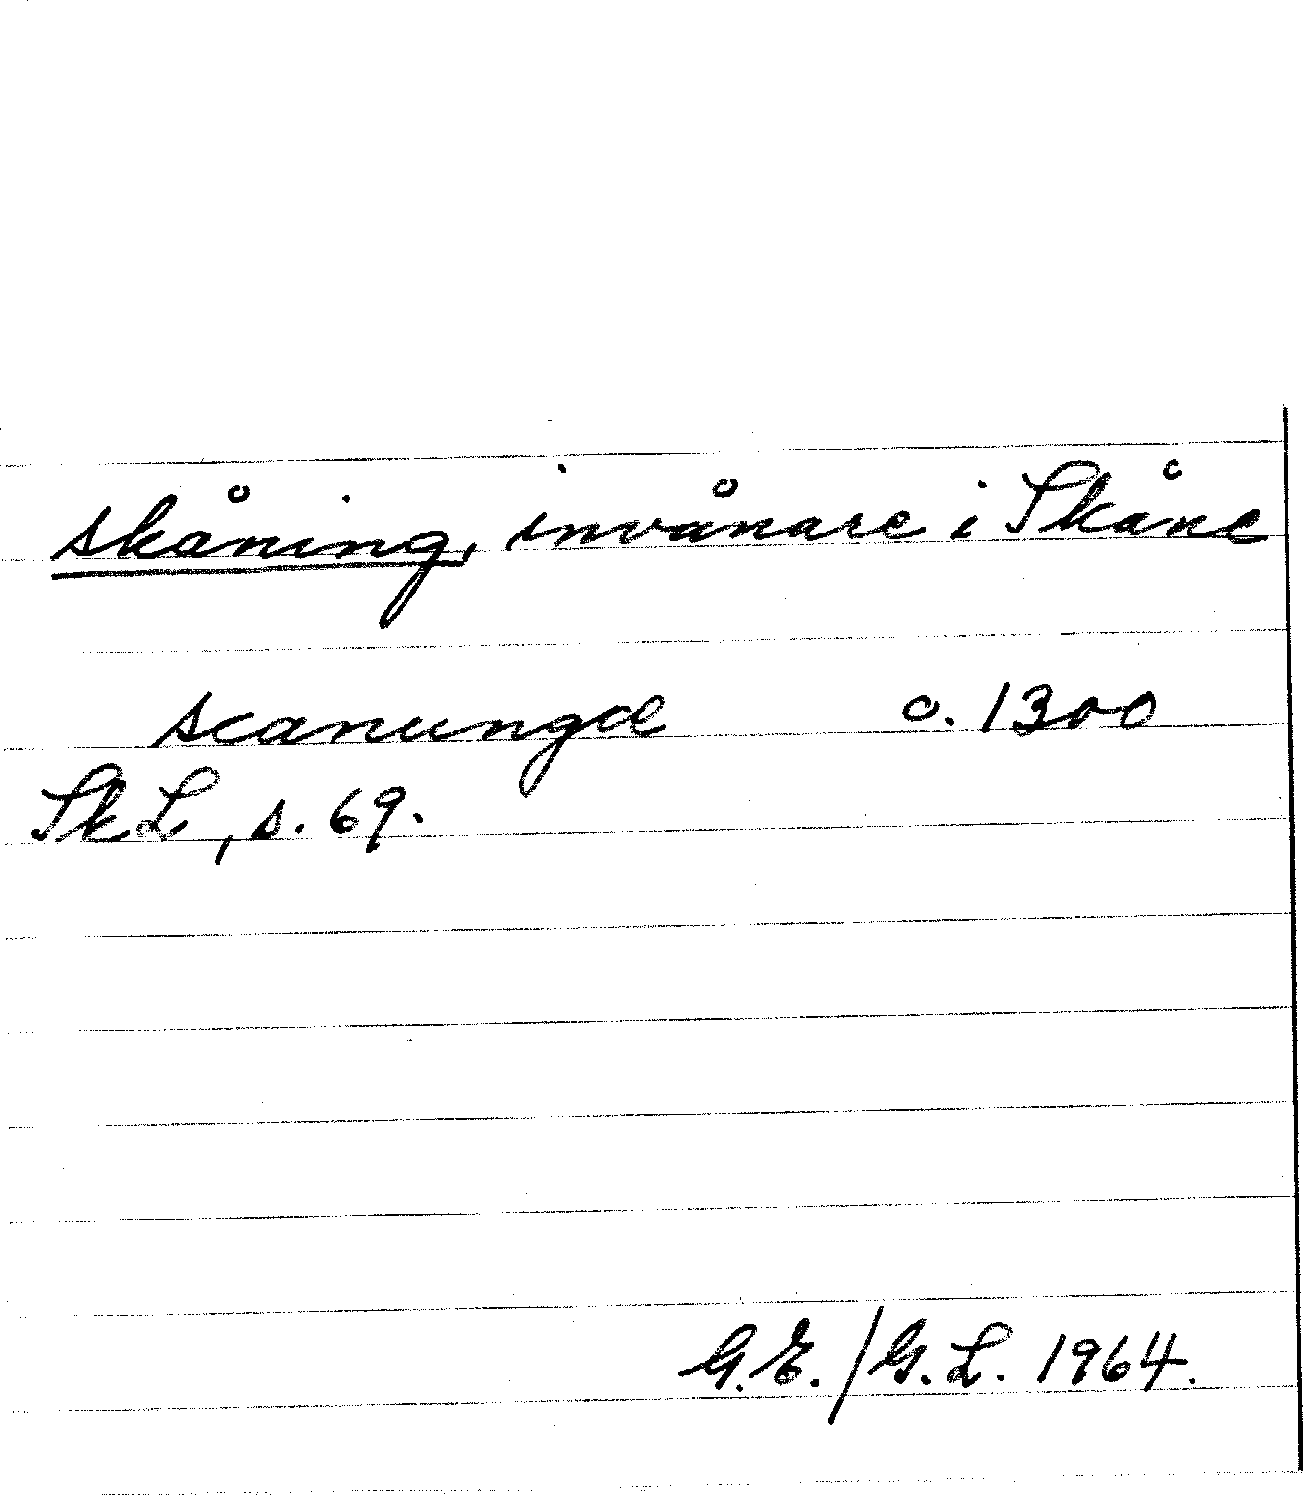 skåning, invånare i Skåne
scanungæ c. 1300
SkL, s. 69.
G.E./G.L. 1964.